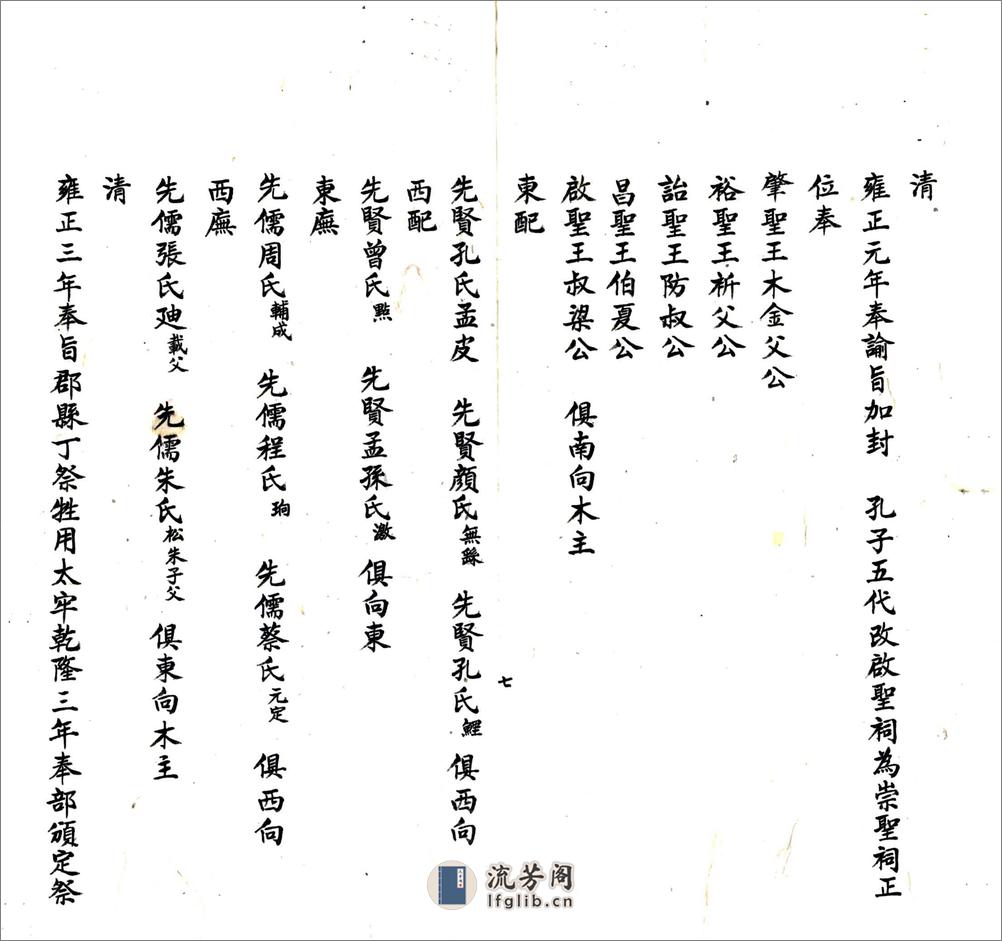 清
雍正元年奉諭旨加封 孔子五代改啟聖祠為崇聖祠正
位奉
肇聖王木金父公
裕聖王祈父公
詒聖王防叔公
昌聖王伯夏公
啟聖王叔梁公 俱南向木主
東配
先賢孔氏孟皮 先賢顏氏無繇 先賢孔氏鯉 俱西向
西配
先賢曾氏點 先賢孟孫氏激 俱向東
東廡
先儒周氏輔成 先儒程氏珦 先儒蔡氏元定 俱西向
西廡
先儒張氏迪載父 先儒朱氏松朱子父 俱東向木主
清
雍正三年奉旨郡縣丁祭牲用太牢乾隆三年奉部頒定祭
七
流芳阁
lfglib.cn